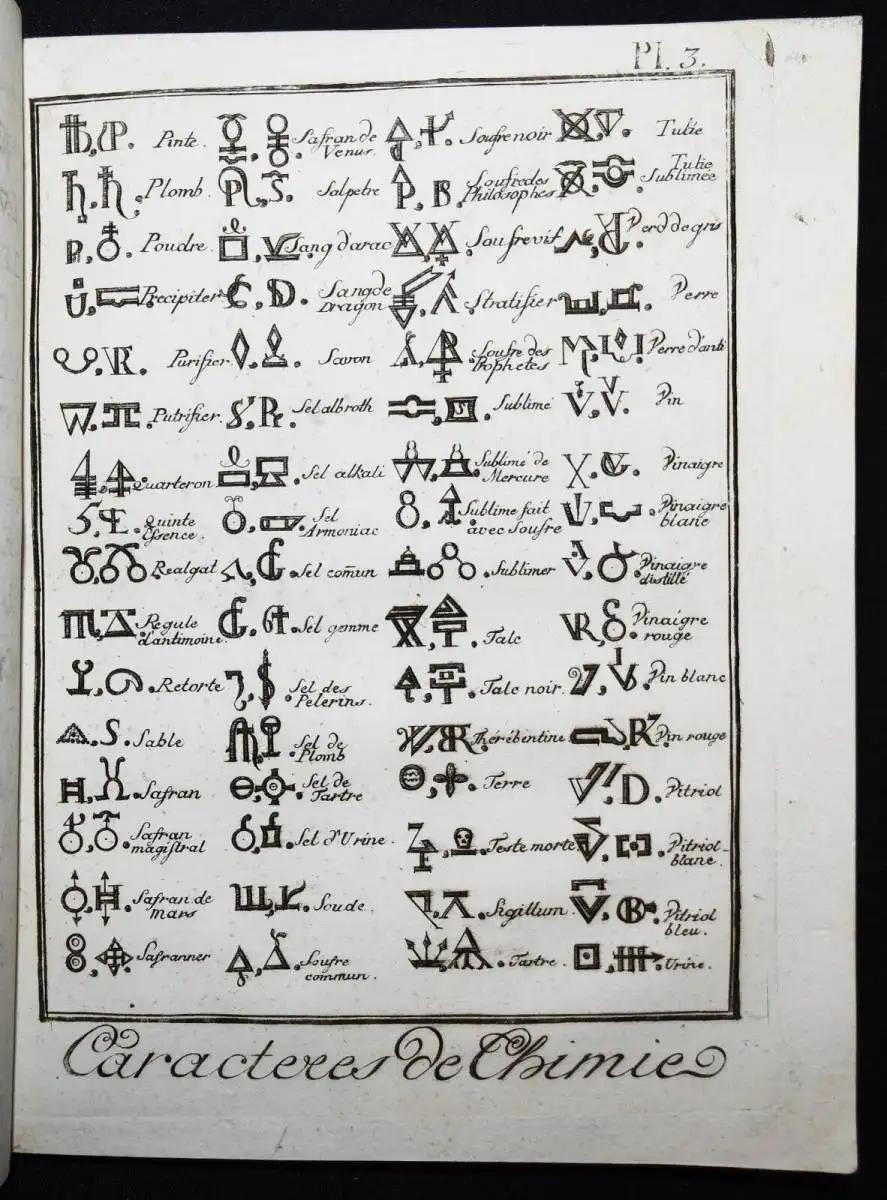 Pl. 3.
Pinte.
Plomb.
Poudre
Precipiter
Purifier.
Putrifier.
Quarteron
Quinte
Essence.
Realgal
Regule
d'antimoine
Retorte
Sable
Safran
Safran
magistral
Safran de
Mars
Safranner
Safran de
Venus.
Salpetre
Sang d'arac
Sang de
Dragon
Savon
Sel albroth
Sel alkali
Sel
Armoniac
Sel com̃un
Sel gemme
Sel des
Pelerins.
Sel de
Plomb
Sel de
Tartre
Sel d'Urine.
Soude.
Soufre
commun.
Soufre noir
Soufre des
Philosophes
Soufre vif
Stratifier
Soufre des
Prophetes
Sublimé
Sublimé de
Mercure
Sublime fait
avec Soufre
Sublimer
Talc
Talc noir.
Thérébentine
Terre
Teste morte
Sigillum.
Tartre.
Tutie
Tutie
Sublimée
Verd de gris
Verre
Verre d'anti
Vin
Vinaigre
Vinaigre
blanc
Vinaigre
distillé
Vinaigre
rouge
Vin blanc
Vin rouge
Vitriol
Vitriol
blanc.
Vitriol
bleu.
Urine.
Caracteres de Chimie